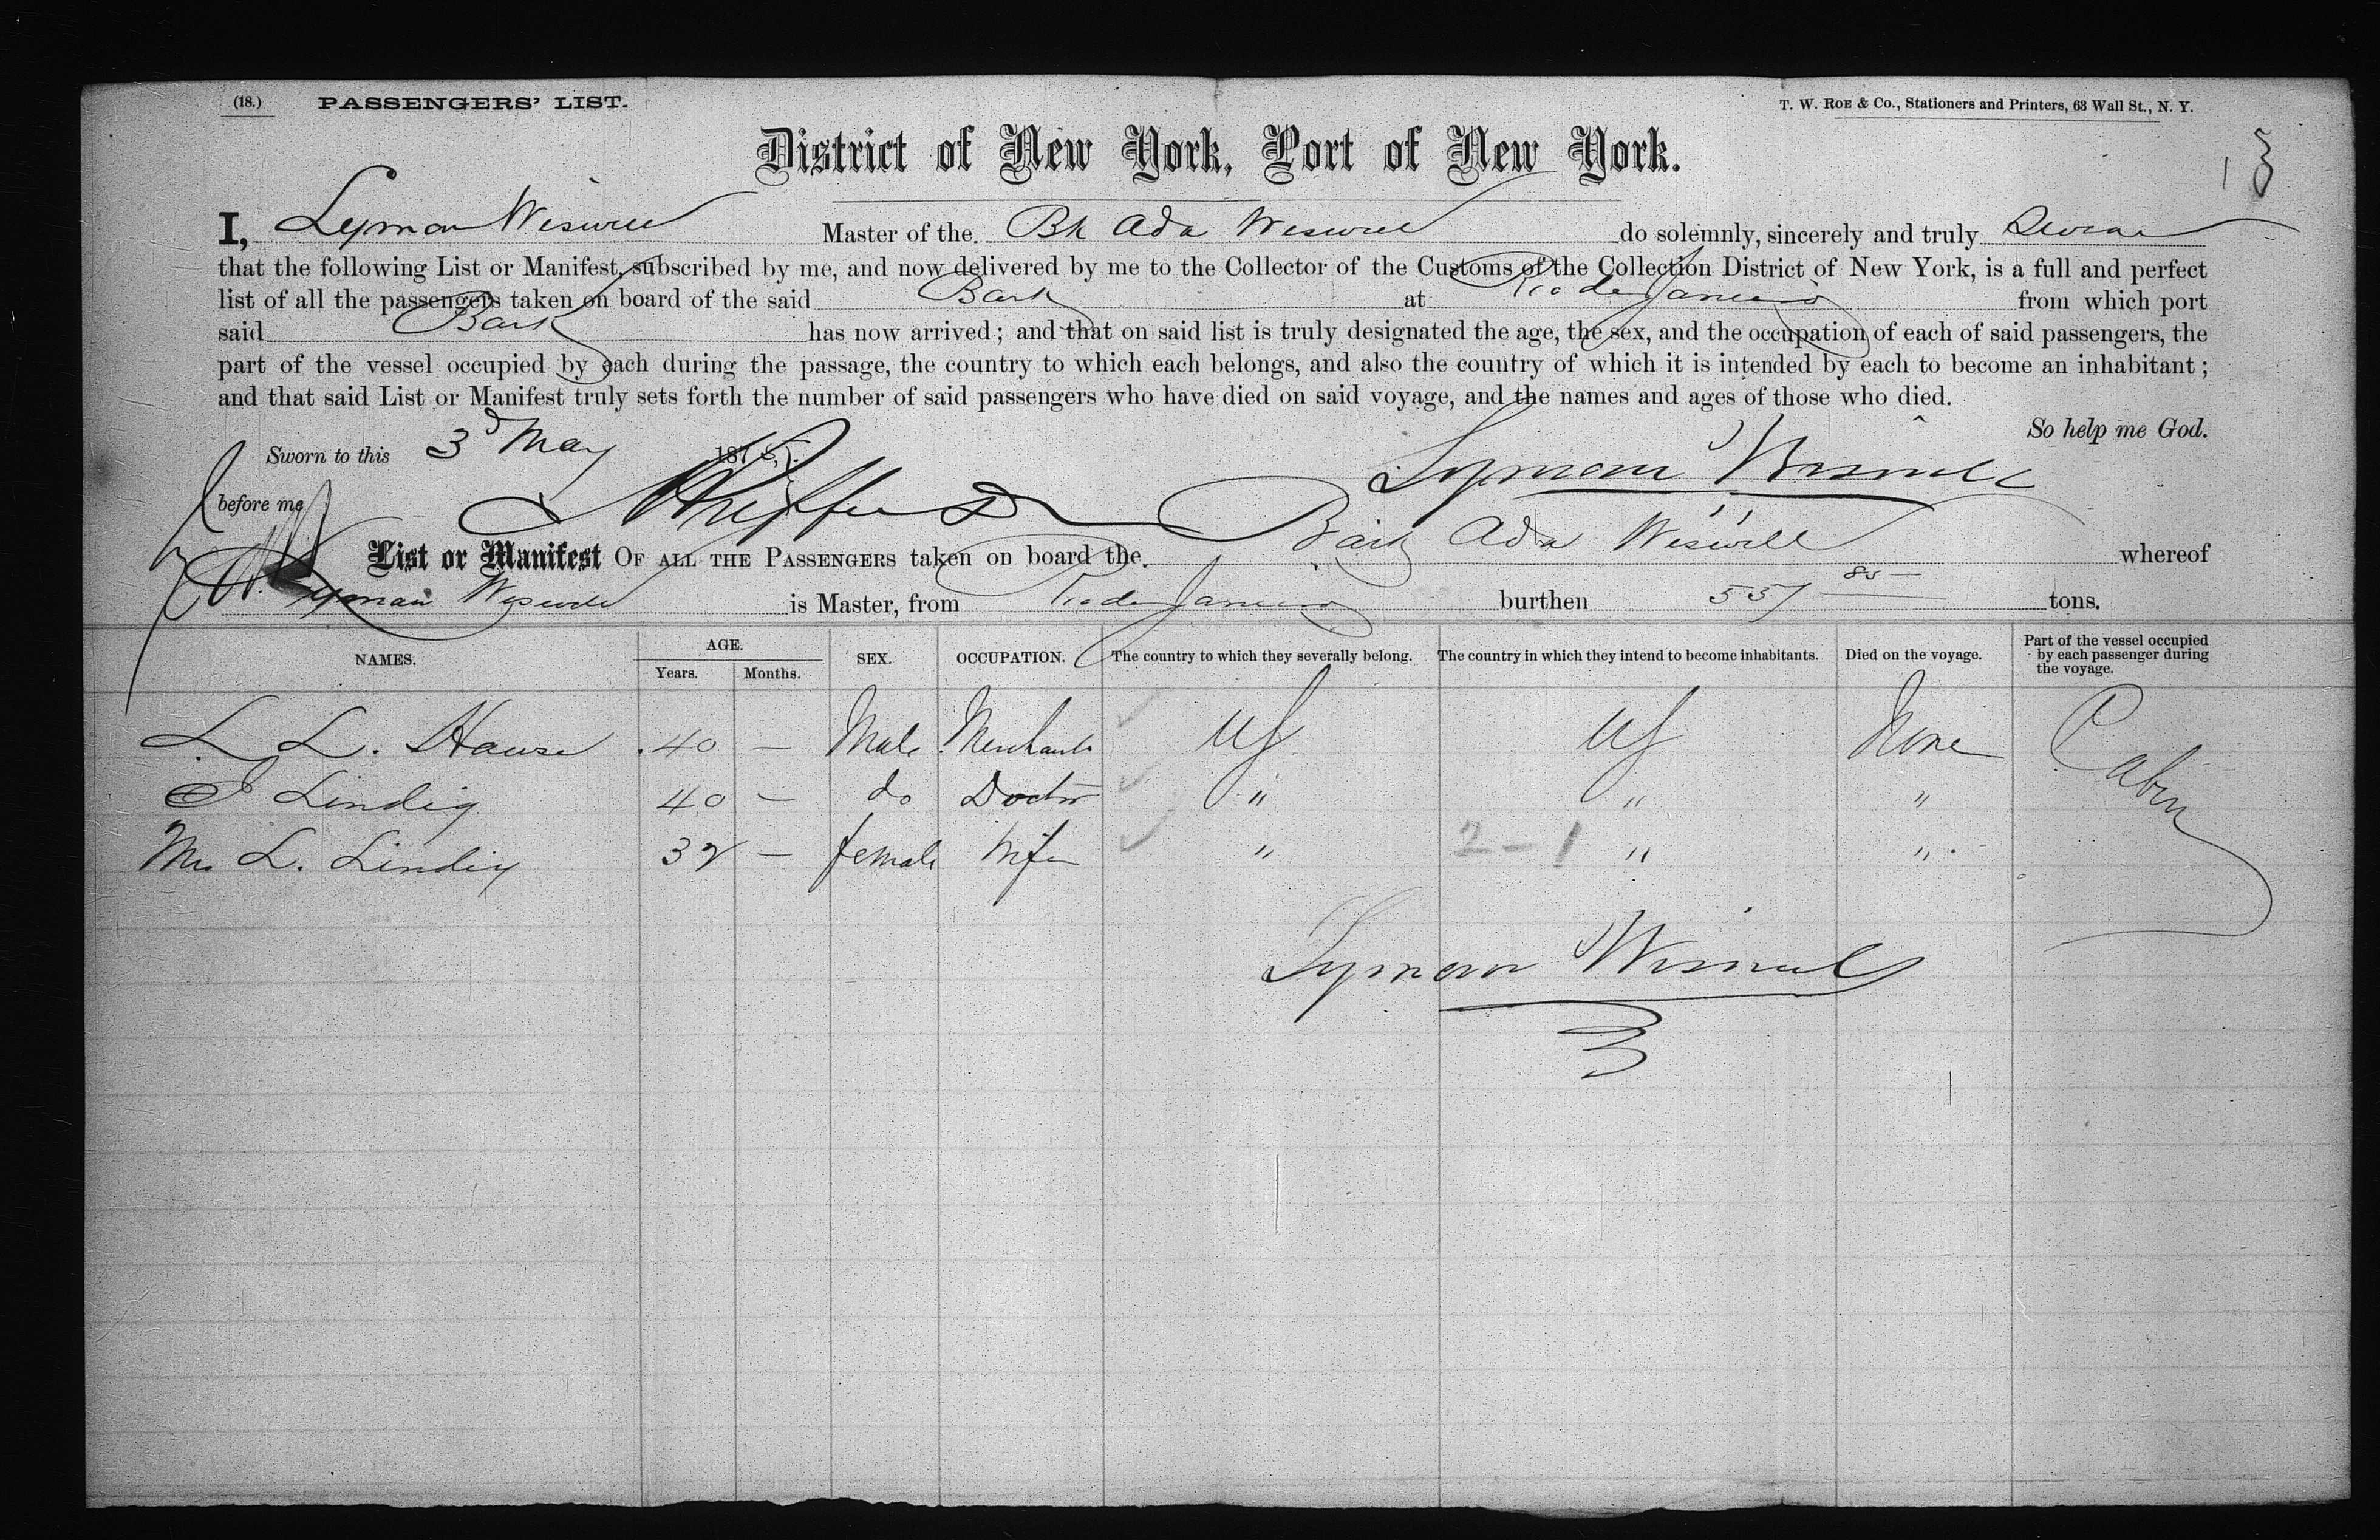 (18.) PASSENGERS' LIST. T. W. ROE & Co., Stationers and Printers, 63 Wall St., N. Y.
District of New York, Port of New York.
13
I, Lyman Wiswell Master of the Bk Ada Wiswell do solemnly, sincerely and truly Swear
that the following List or Manifest, subscribed by me, and now delivered by me to the Collector of the Customs of the Collection District of New York, is a full and perfect
list of all the passengers taken on board of the said Bark at Rio de Janeiro from which port
said Bark has now arrived; and that on said list is truly designated the age, the sex, and the occupation of each of said passengers, the
part of the vessel occupied by each during the passage, the country to which each belongs, and also the country of which it is intended by each to become an inhabitant;
and that said List or Manifest truly sets forth the number of said passengers who have died on said voyage, and the names and ages of those who died.
So help me God.
Sworn to this 3d May 1875. Lyman Wiswell
before me
List or Manifest OF ALL THE PASSENGERS taken on board the Bark Ada Wiswell whereof
Lyman Wiswell is Master, from Rio de Janeiro burthen 557 85 tons.
NAMES. AGE. Years. Months. SEX. OCCUPATION. The country to which they severally belong. The country in which they intend to become inhabitants. Died on the voyage. Part of the vessel occupied by each passenger during the voyage.
L L. Hause 40 — Male Merchant US US None Cabin
Lindig 40 — do Doctor " " "
Mrs L. Lindig 32 — female Wife " 2 - 1 " "
Lyman Wiswell